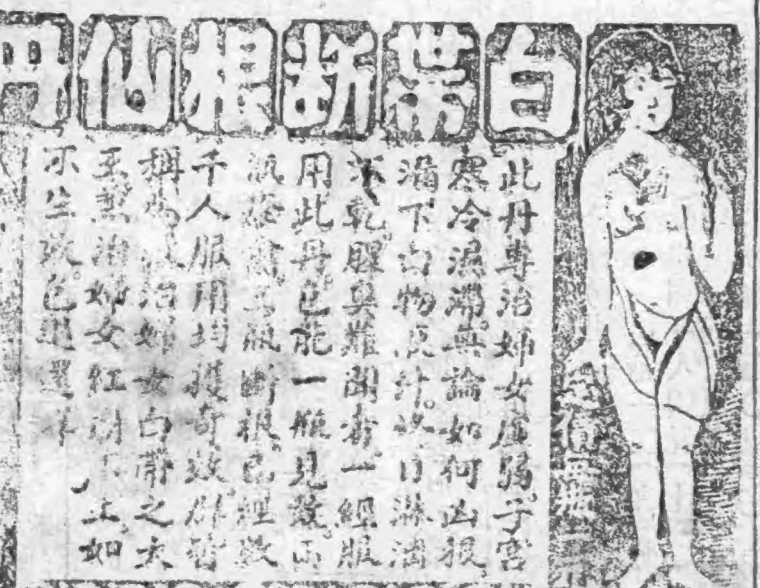 白帶断根仙丹
此丹專治婦女虛弱子宮
寒冷濕滯無論如何凶狠
淌下白物液汁終日淋漓
不乾腥臭難聞者一經服
用此丹包能一瓶見效
瓶斷根已經數
千人服用均獲奇效群皆
稱為治婦女白帶之大
王兼治婦女紅潮不正如
不生效包退還洋